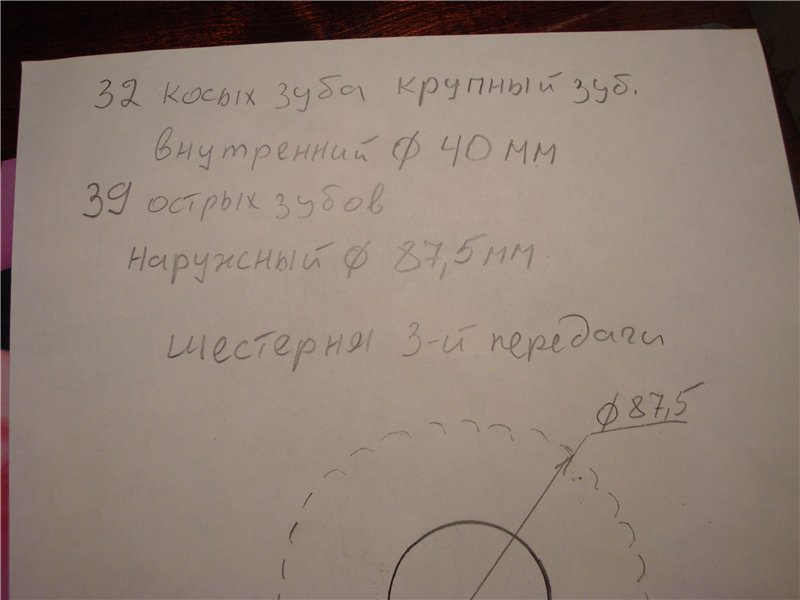 32 косых зуба крупный зуб.
внутренний ⌀ 40 мм
39 острых зубов
наружный ⌀ 87,5 мм
шестерня 3-й передачи
⌀ 87,5